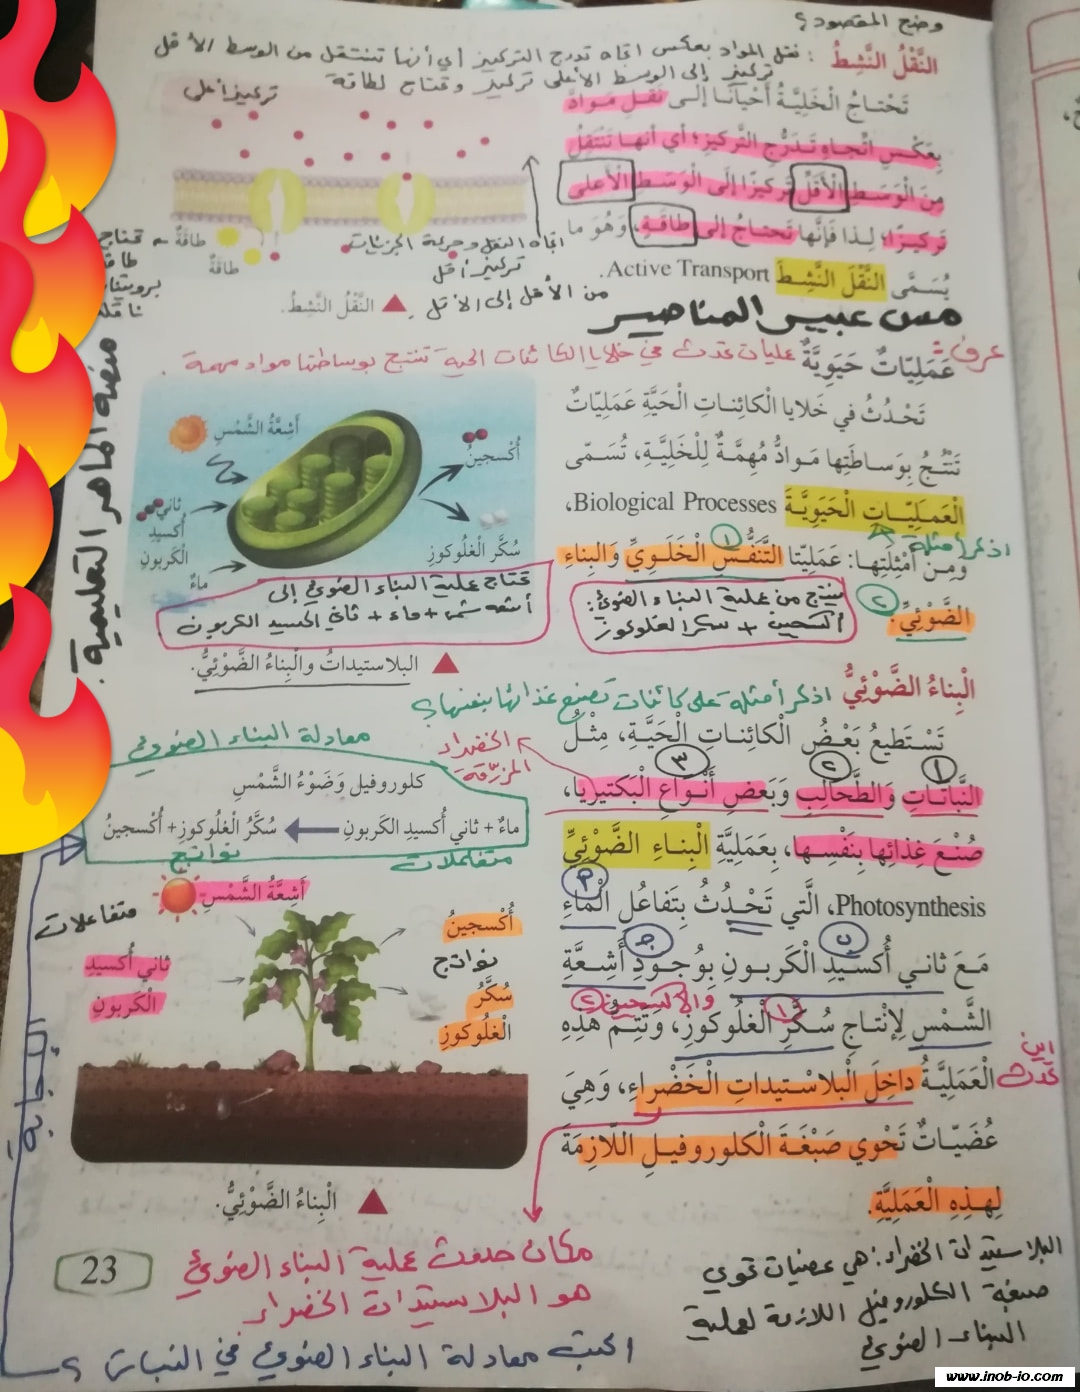 وضح المقصود؟
النَّقْلُ النَّشِطُ : نقل المواد بعكس اتجاه تدرج التركيز أي أنها تنتقل من الوسط الأقل
تركيز إلى الوسط الأعلى تركيز وتحتاج لطاقة
تَحْتاجُ الْخَلِيَّةُ أَحْيانًا إِلى نَقْلِ مَوادَّ
بِعَكْسِ اتِّجاهِ تَدَرُّجِ التَّرْكيزِ؛ أَيْ أَنَّها تَنْتَقِلُ
مِنَ الْوَسَطِ الْأَقَلِّ تَرْكيزًا إِلَى الْوَسَطِ الْأَعْلى
تَرْكيزًا؛ لِذا فَإِنَّها تَحْتاجُ إِلى طاقَةٍ، وَهُوَ ما
يُسَمَّى النَّقْلَ النَّشِطَ Active Transport.
تركيز أعلى
طاقَةٌ
طاقَةٌ
تحتاج
طاقة
بروتينات
ناقلة
اتجاه النقل وحركة الجزيئات
تركيز أقل
من الأقل إلى الأقل
النَّقْلُ النَّشِطُ.
مس عبير المناصير
منصة الماهر التعليمية.
عرف
عَمَلِيّاتٌ حَيَوِيَّةٌ عمليات تحدث في خلايا الكائنات الحية تنتج بوساطتها مواد مهمة.
تَحْدُثُ في خَلايا الْكائِناتِ الْحَيَّةِ عَمَلِيّاتٌ
تَنْتُجُ بِوَساطَتِها مَوادُّ مُهِمَّةٌ لِلْخَلِيَّةِ، تُسَمّى
الْعَمَلِيّاتِ الْحَيَوِيَّةَ Biological Processes،
اذكر أمثلة
وَمِنْ أَمْثِلَتِها: عَمَلِيَّتا التَّنَفُّسِ الْخَلَوِيِّ وَالبِناءِ
١
الضَّوْئِيِّ.
٢
ينتج من عملية البناء الضوئي:
أكسجين + سكر الغلوكوز
أَشِعَّةُ الشَّمْسِ
أُكْسجينُ
ثاني
أُكْسيدِ
الْكَربونِ
ماءٌ
سُكَّر الْغلوكوزِ
تحتاج عملية البناء الضوئي إلى
أشعة شمس + ماء + ثاني أكسيد الكربون
البلاستيداتُ والْبِناءُ الضَّوْئِيُّ.
الْبِناءُ الضَّوْئِيُّ
اذكر أمثلة على كائنات تصنع غذائها بنفسها؟
تَسْتَطيعُ بَعْضُ الْكائِناتِ الْحَيَّةِ، مِثْلُ
١ ٢ ٣
النَّباتاتِ وَالطَّحالِبِ وَبَعْضِ أَنْواعِ الْبَكتيريا،
الخضراء
المزرقة
صُنْعَ غِذائِها بِنَفْسِها، بِعَمَلِيَّةِ الْبِناءِ الضَّوْئِيِّ
Photosynthesis، الَّتي تَحْدُثُ بِتَفاعُلِ الْماءِ
مَعَ ثاني أُكْسيدِ الْكَربونِ بِوُجودِ أَشِعَّةِ
والأكسجين ٢
١
الشَّمْسِ لِإِنْتاجِ سُكَّرِ الْغلوكوزِ، وَتَتِمُّ هٰذِهِ
الْعَمَلِيَّةُ داخِلَ الْبلاسْتيداتِ الْخَضْراءِ، وَهِيَ
أين
تحدث
عُضَيّاتٌ تَحْوي صَبْغَةَ الْكلوروفيلِ اللّازِمَةَ
لِهٰذِهِ الْعَمَلِيَّةِ.
معادلة البناء الضوئي
كلوروفيل وَضَوْءُ الشَّمْسِ
ماءٌ + ثاني أُكسيدِ الكَربونِ سُكَّرُ الْغلوكوزِ+ أُكْسجينُ
متفاعلات
نواتج
أَشِعَّةُ الشَّمْسِ
متفاعلات
ثاني أُكسيدِ
الْكَربونِ
أُكْسجينُ
نواتج
سُكَّرُ
الْغلوكوزِ
الْبِناءُ الضَّوْئِيُّ.
الإجابة
23
مكان حدوث عملية البناء الضوئي
هو البلاستيدات الخضراء
البلاستيدات الخضراء: هي عضيات تحوي
صبغة الكلوروفيل اللازمة لعملية
البناء الضوئي
اكتب معادلة البناء الضوئي في النبات؟
www.inob-io.com